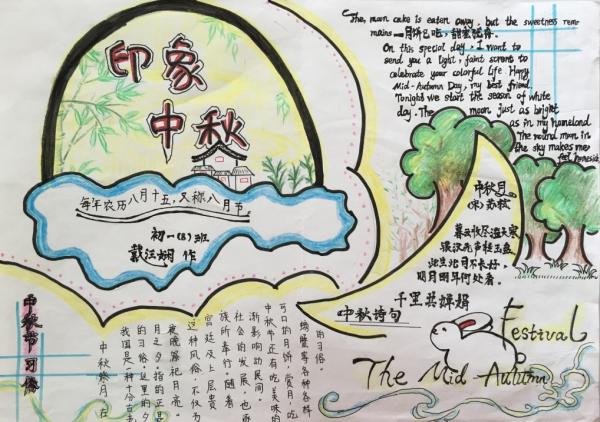 印象
中秋
每年农历八月十五,又称八月节
初一(8)班
作
The, moon cake is eaten away, but the sweetness rem-
mains 一月饼已吃,甜蜜犹存.
On this special day, I want to
send you a light, faint scrent to
celebrate your colorful life. Happy
Mid-Autumn Day, my best friend.
Tonight we start the season of white
day. The moon just as bright
as in my homeland
The round moon in
the sky makes me
feel homesick
中秋月
(宋)苏轼
暮云收尽溢清寒
银汉无声转玉盘
此生此月不长好,
明月明年何处看。
千里共婵娟
中秋诗句
Festival
The Mid-Autumn
中秋节习俗
中秋祭月,在
我国是一种十分古老
的习俗。这里的夕
月之夕,指的正是
夜晚祭祀月亮。
这种风俗,不仅为
宫廷及上层贵
族所奉行,随着
社会的发展,也逐
渐影响到民间。
中秋节还有吃美味的
可口的月饼,赏月,吃
螃蟹等各种各样
的习俗。